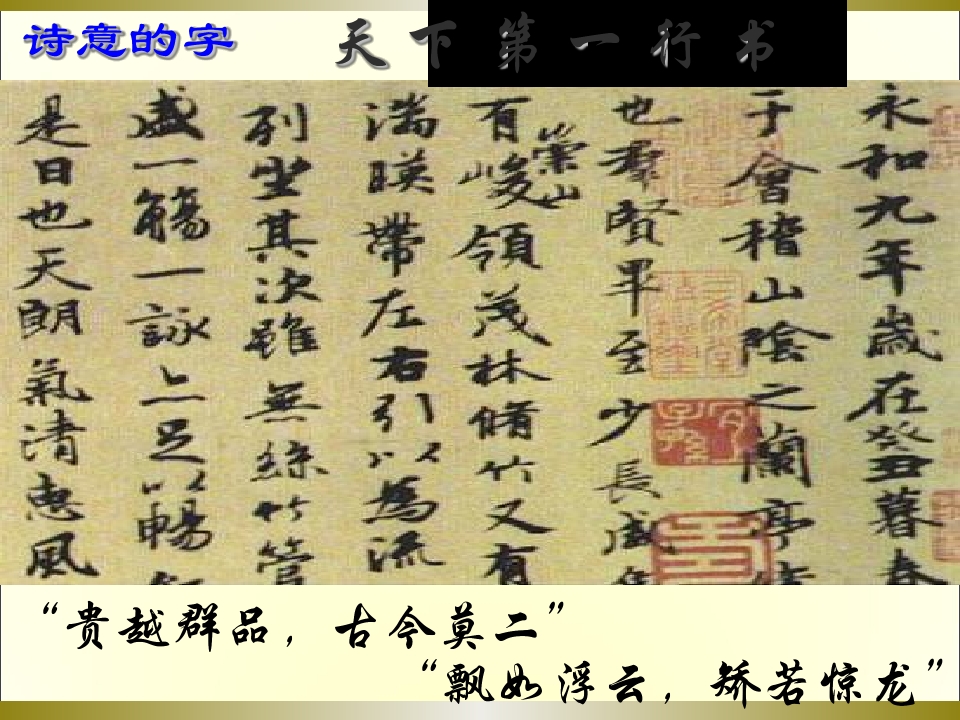 诗意的字
天下第一行书
永和九年歲在癸丑暮春
于會稽山陰之蘭亭
也羣賢畢至少長咸
有崇山峻領茂林脩竹又有
湍暎帶左右引以為流
列坐其次雖無絲竹管
盛一觴一詠亦足以暢
是日也天朗氣清惠風
“贵越群品，古今莫二”
“飘如浮云，矫若惊龙”